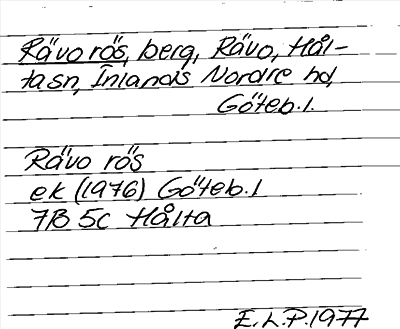 Rävo rös, berg, Rävo, Hål-
ta sn, Inlands Nordre hd,
Göteb. l.
Rävo rös
ek (1976) Göteb. l
7B 5c Hålta
E.L.P. 1977